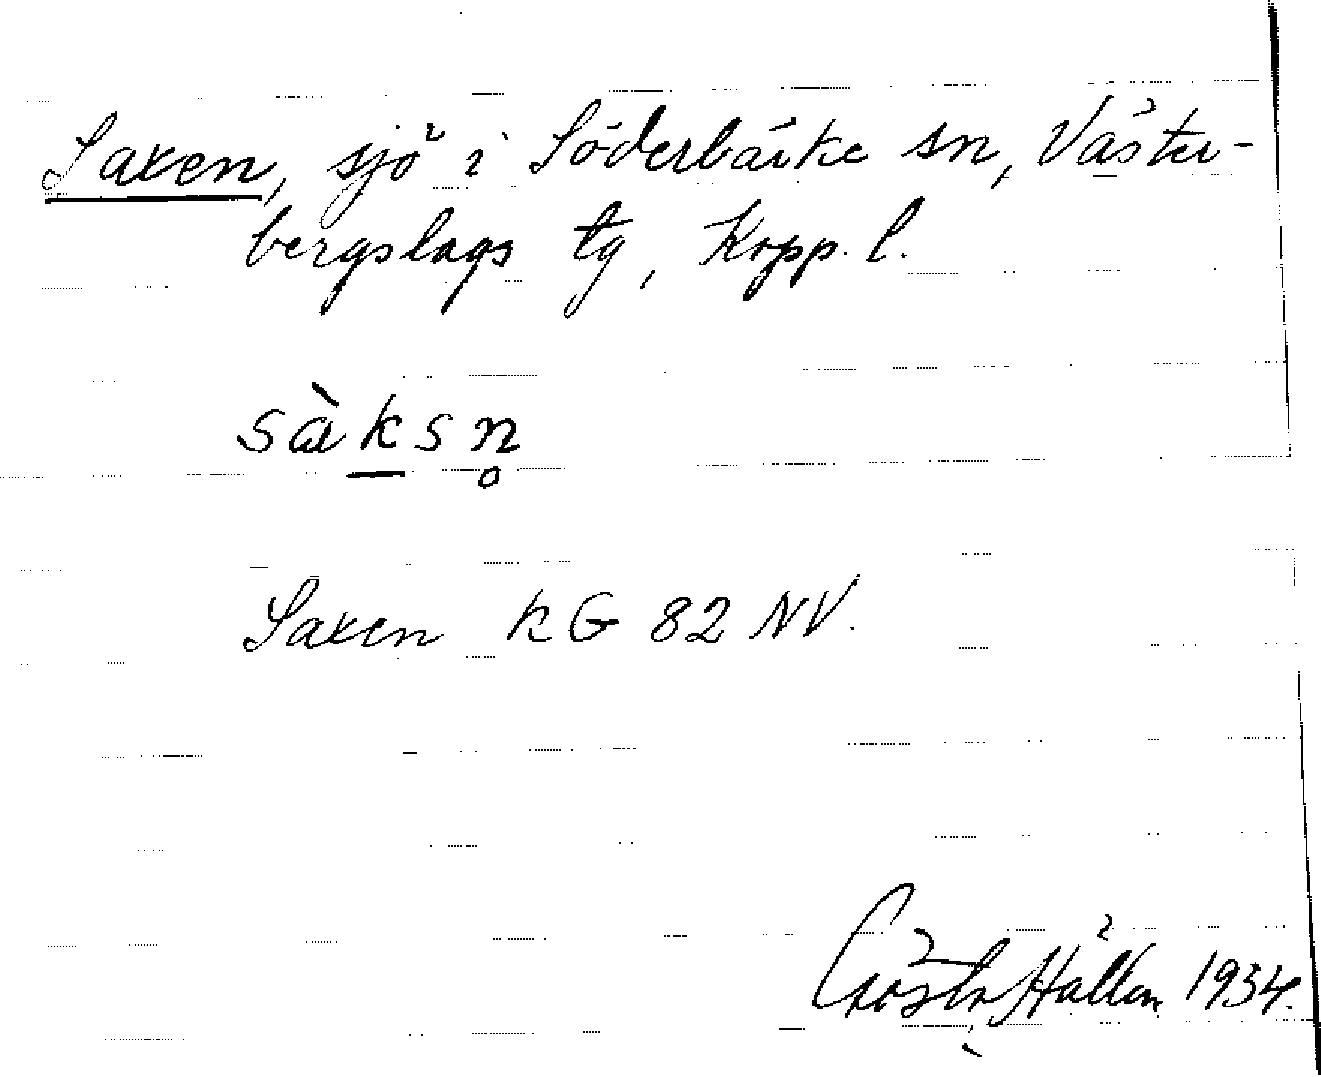 Saxen, sjö i Söderbärke sn, Väster-
bergslags tg, Kopp. l.
sàksn̥
Saxen KG 82 NV.
Gösta Hållan 1934.